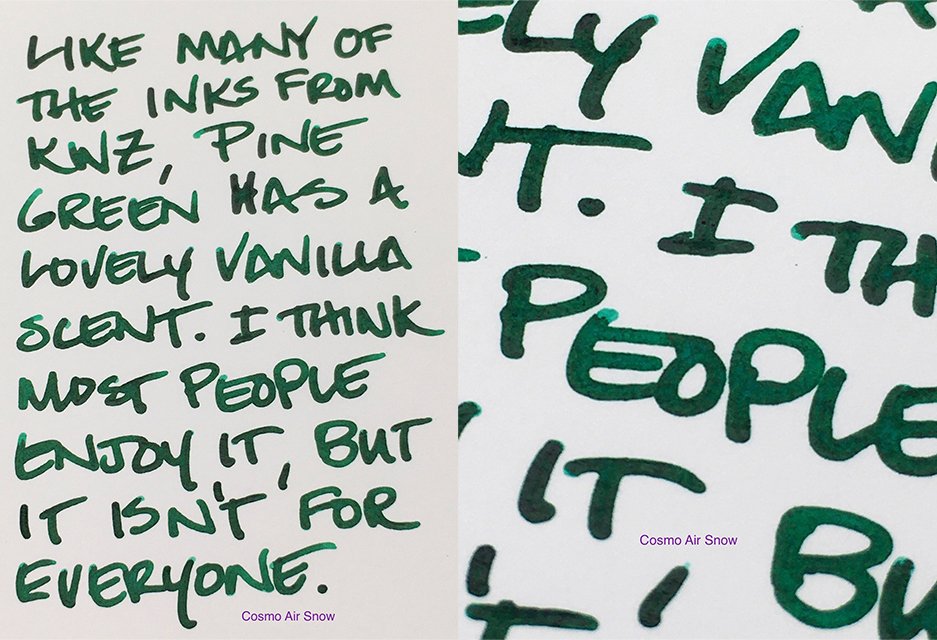 LIKE MANY OF
THE INKS FROM
KWZ, PINE
GREEN HAS A
LOVELY VANILLA
SCENT. I THINK
MOST PEOPLE
ENJOY IT, BUT
IT ISN'T FOR
EVERYONE.
Cosmo Air Snow
ELY VAN
NT. I TH
PEOPLE
IT BU
Cosmo Air Snow